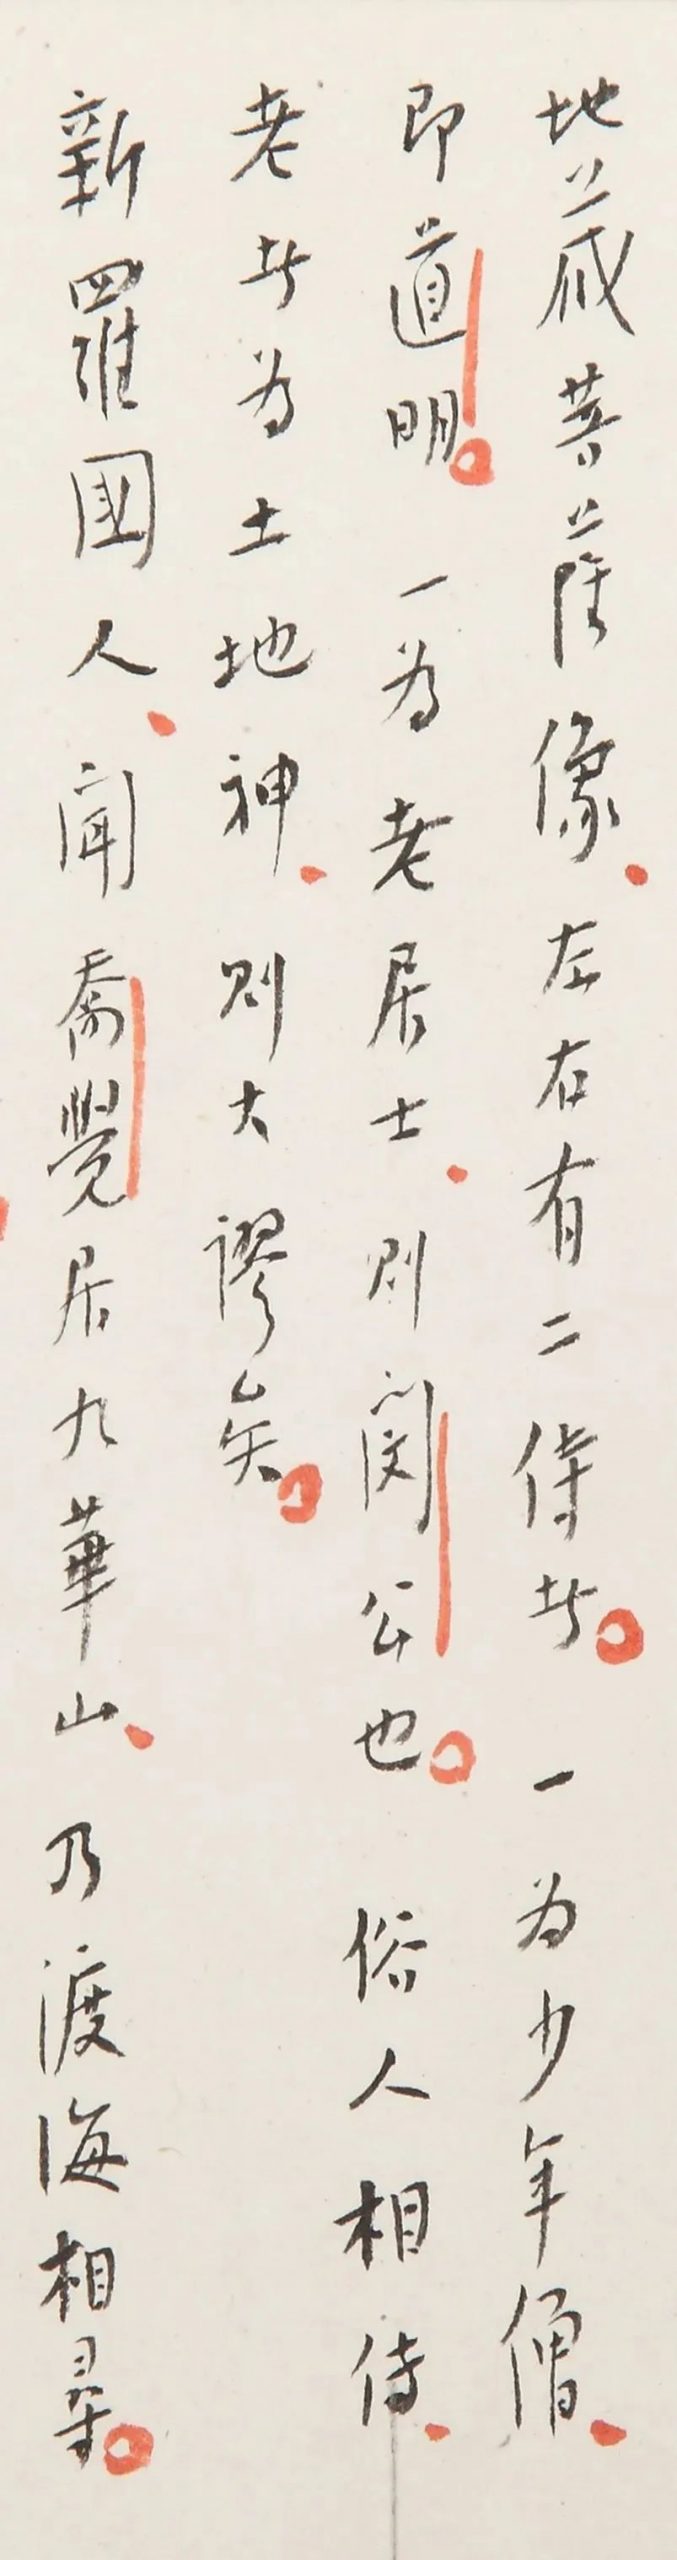 地藏菩薩像、左右有二侍者。一為少年僧、
即道明。一為老居士、則閔公也。俗人相傳、
老者為土地神、則大謬矣。
新羅國人、聞喬覺居九華山、乃渡海相尋。